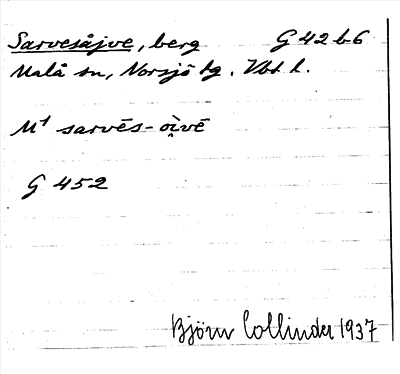 Sarvesåjve, berg G 42 b 6
Malå sn, Norsjö tg. Vbt l.
M¹ sarvēs-òi̭vē
G 452
Björn Collinder 1937